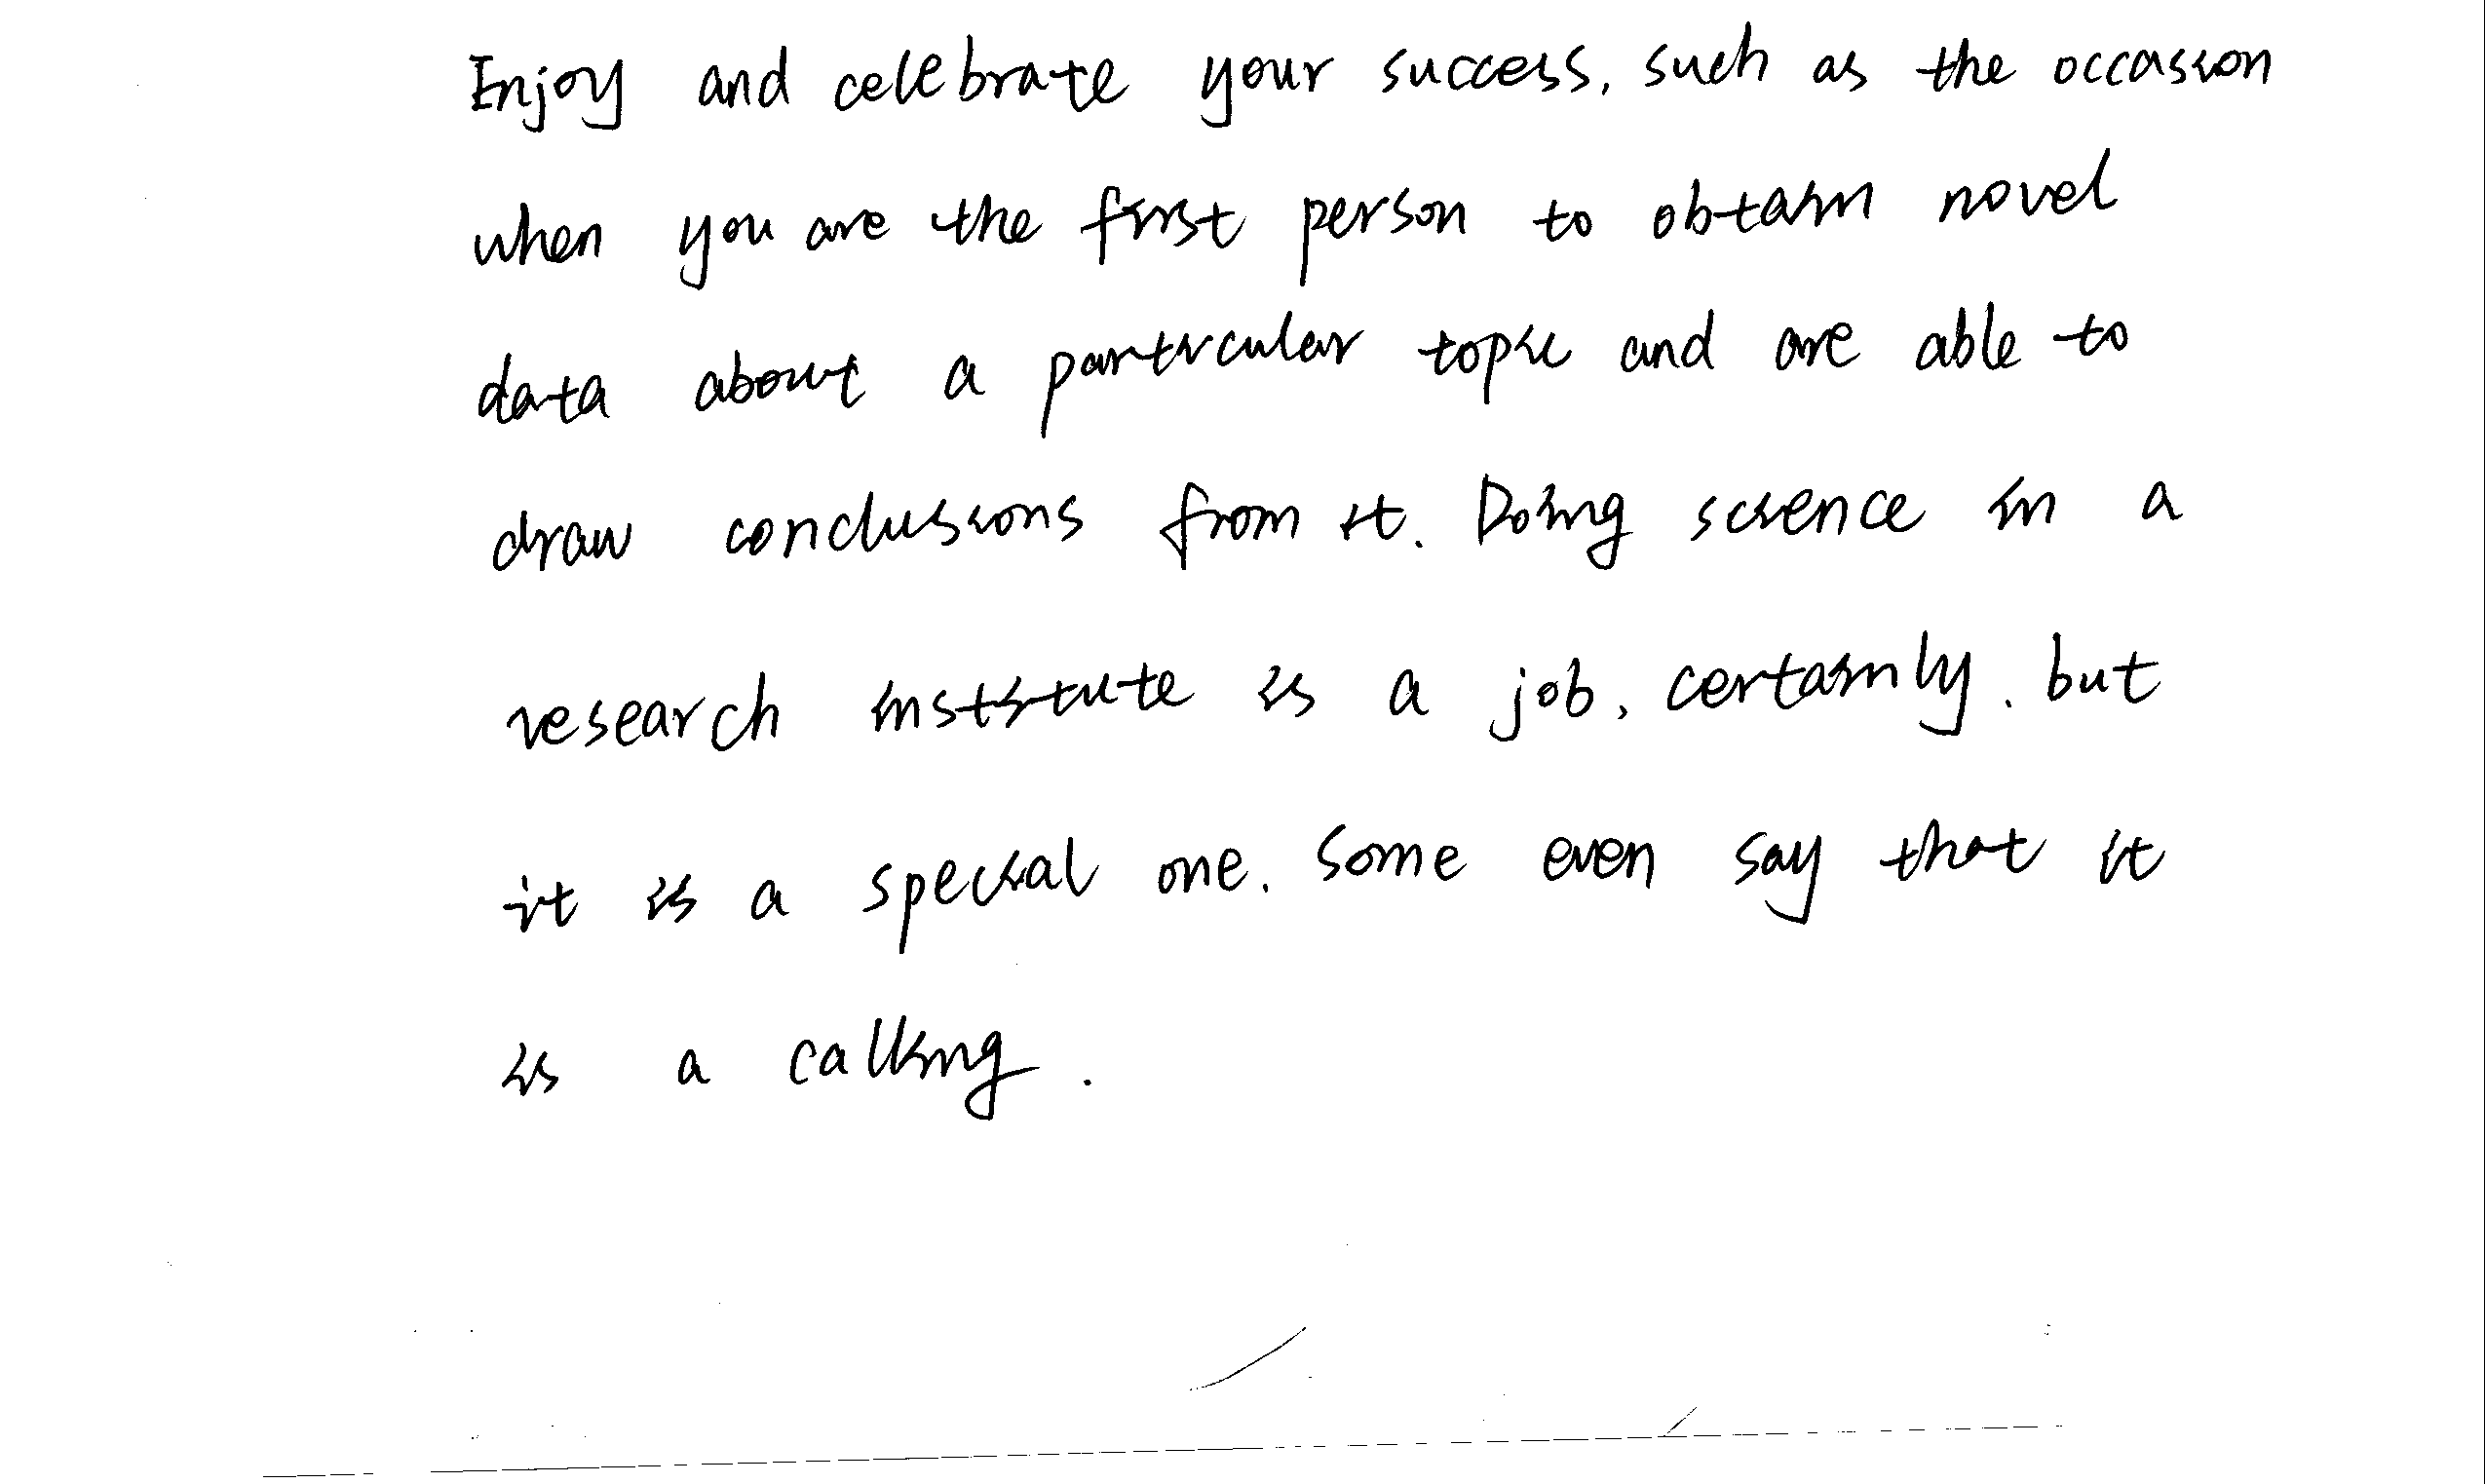 Enjoy and celebrate your success, such as the occasion
when you are the first person to obtain novel
data about a particular topic and are able to
draw conclusions from it. Doing science in a
research institute is a job, certainly, but
it is a special one. Some even say that it
is a calling.